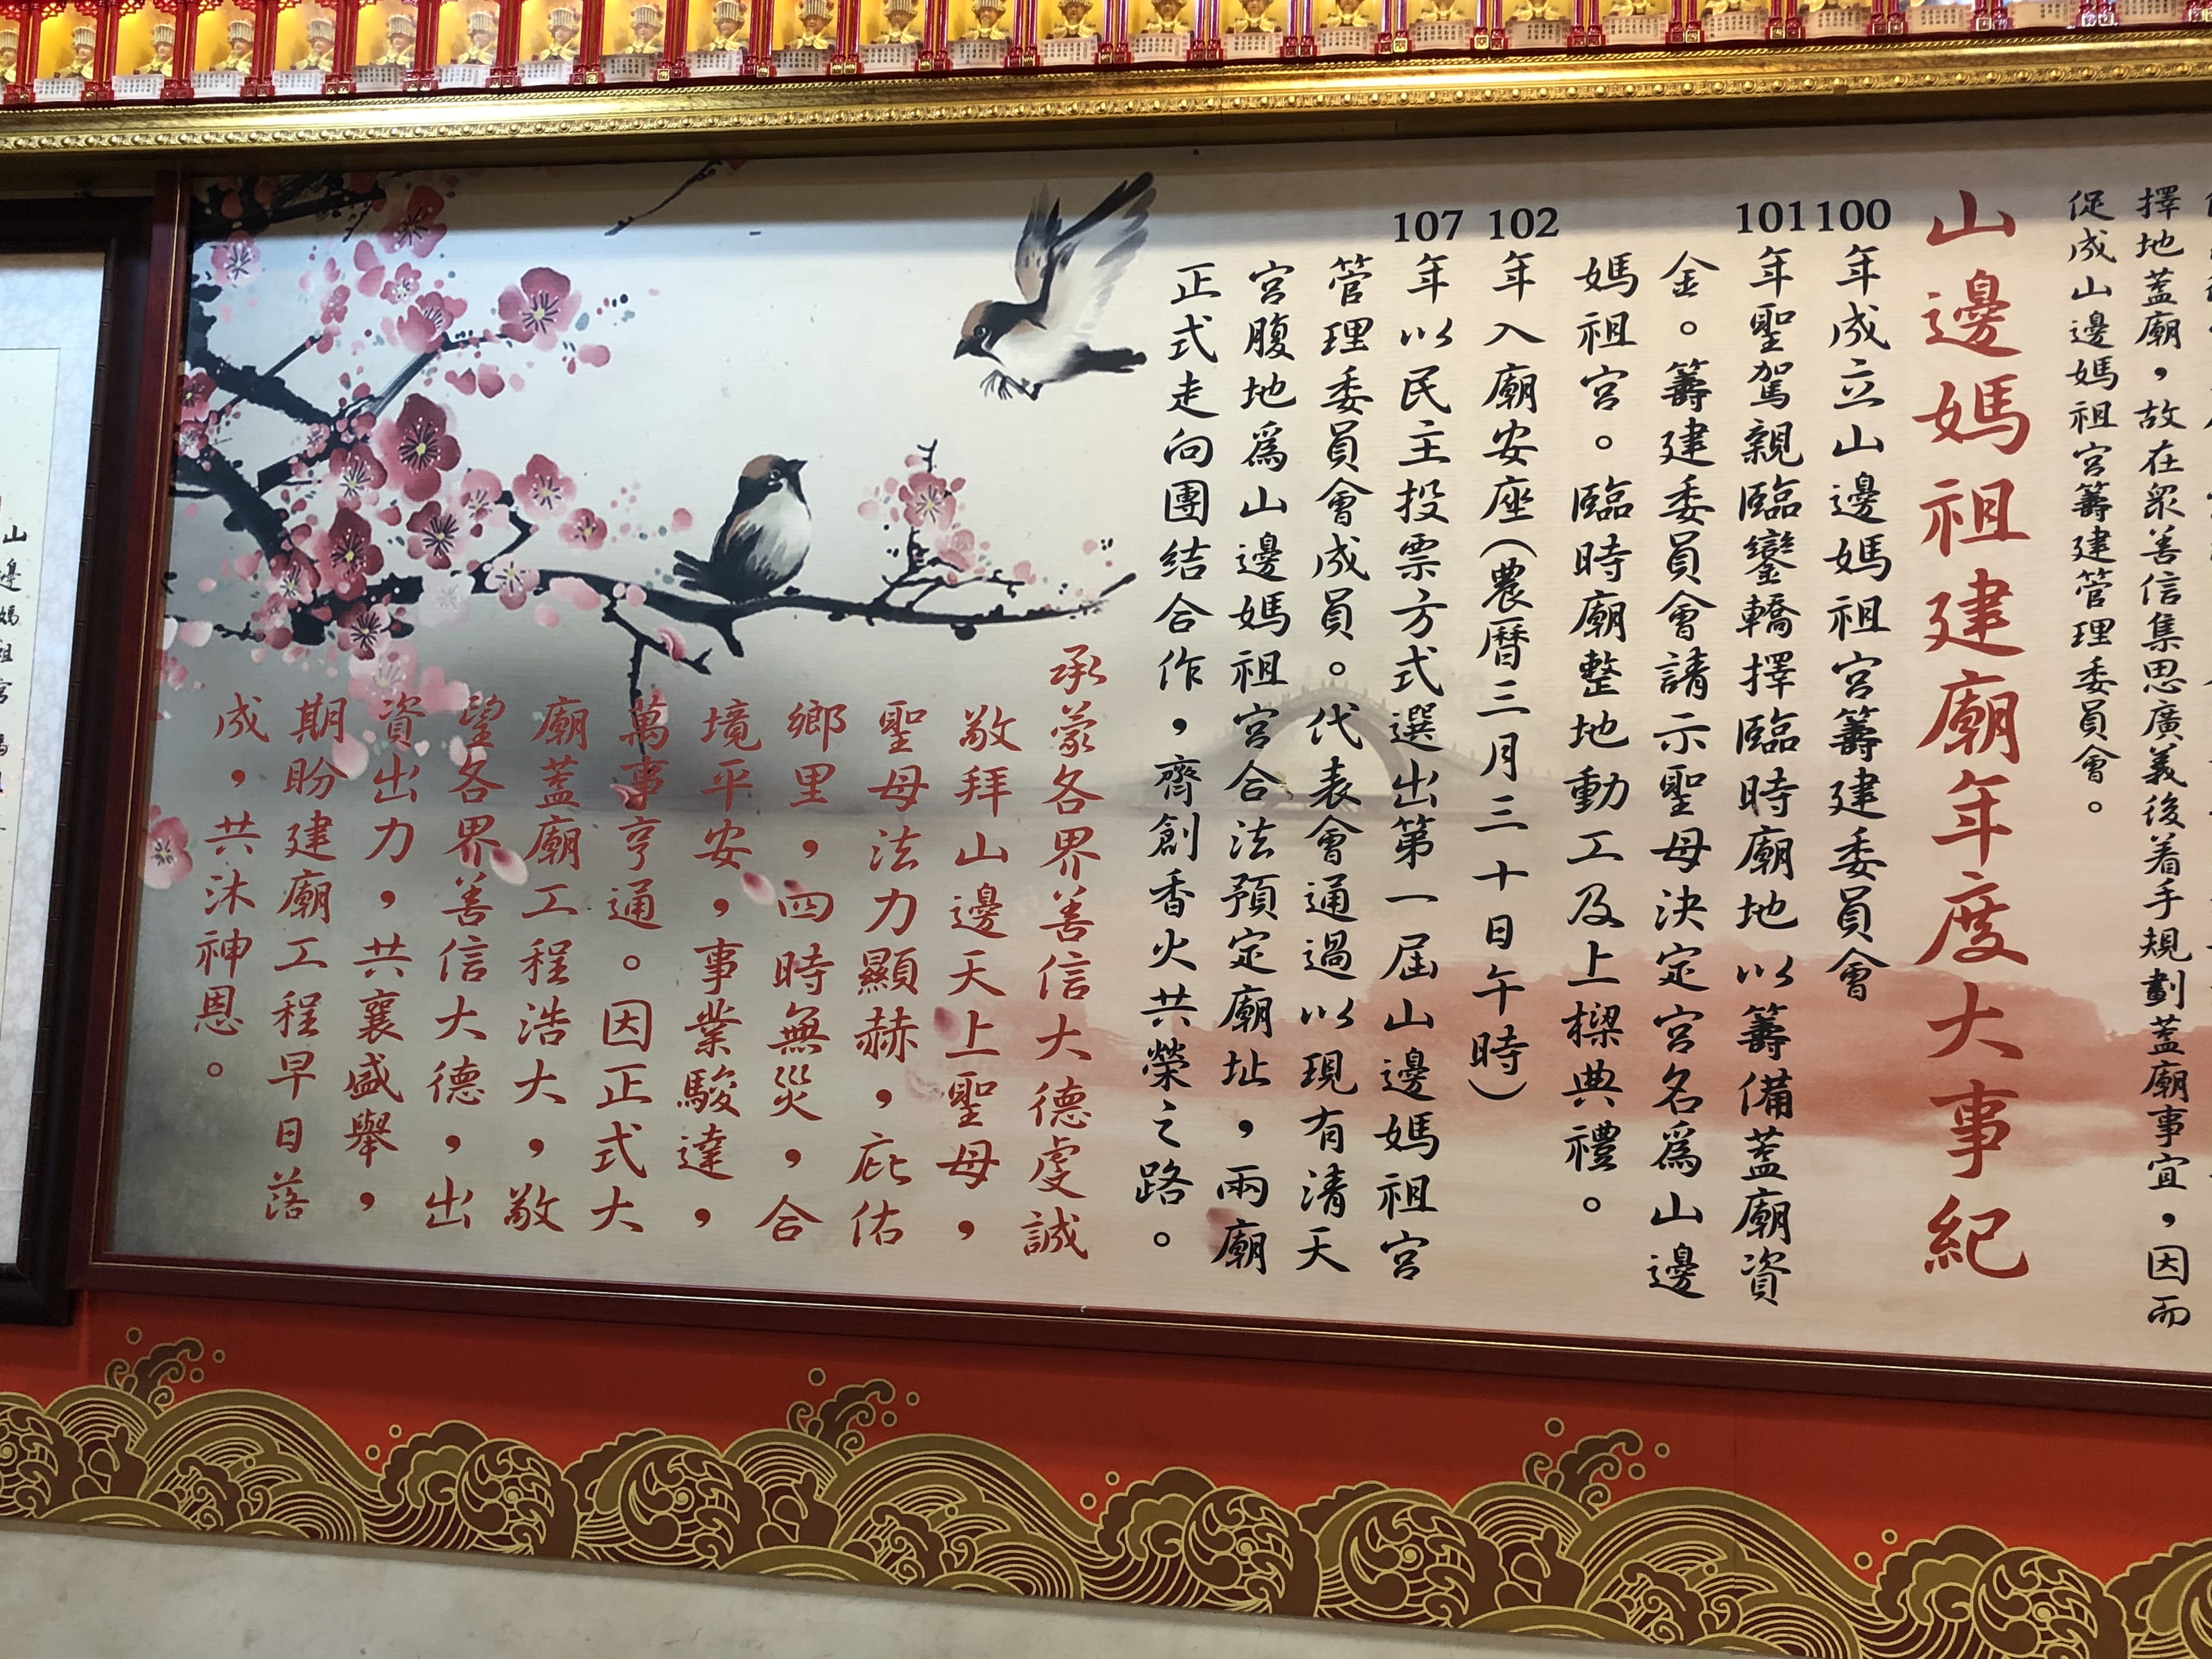 擇地蓋廟，故在眾善信集思廣義後着手規劃蓋廟事宜，因而
促成山邊媽祖宮籌建管理委員會。
山邊媽祖建廟年度大事紀
100年成立山邊媽祖宮籌建委員會
101年聖駕親臨鑾轎擇臨時廟地以籌備蓋廟資
金。籌建委員會請示聖母決定宮名為山邊
媽祖宮。臨時廟整地動工及上樑典禮。
102年入廟安座(農曆三月三十日午時)
107年以民主投票方式選出第一屆山邊媽祖宮
管理委員會成員。代表會通過以現有清天
宮腹地為山邊媽祖宮合法預定廟址，兩廟
正式走向團結合作，齊創香火共榮之路。
承蒙各界善信大德虔誠
敬拜山邊天上聖母，
聖母法力顯赫，庇佑
鄉里，四時無災，合
境平安，事業駿達，
萬事亨通。因正式大
廟蓋廟工程浩大，敬
望各界善信大德，出
資出力，共襄盛舉，
期盼建廟工程早日落
成，共沐神恩。
山邊媽祖宮